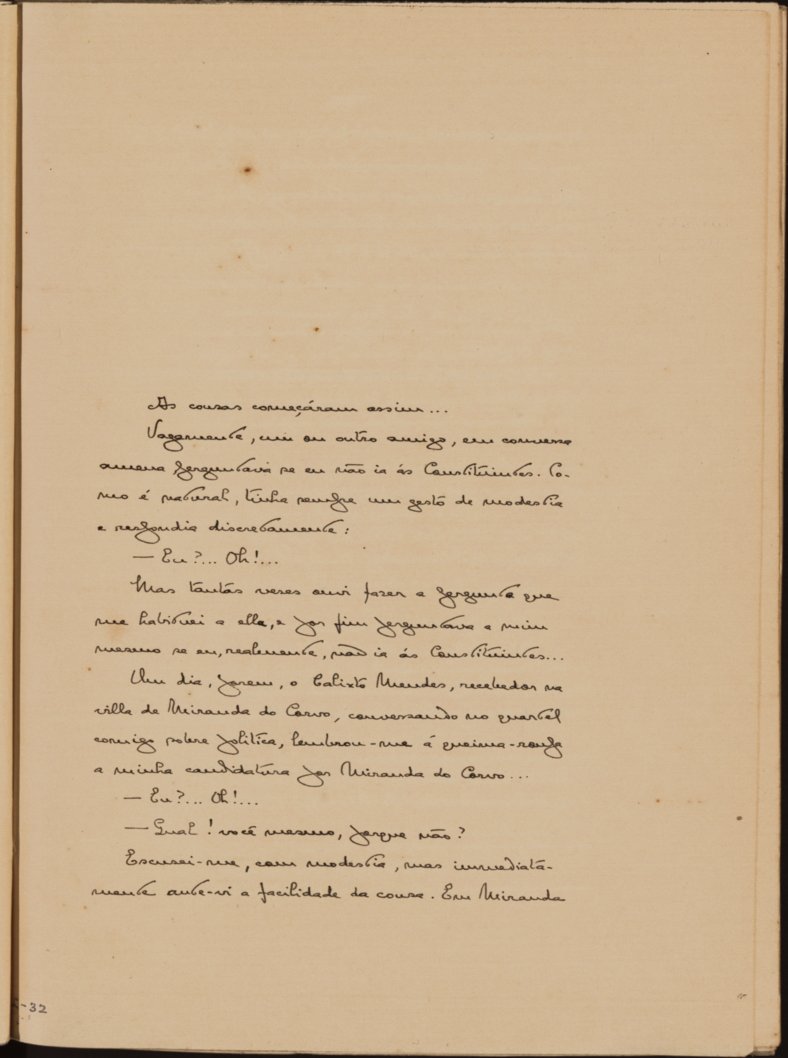 As cousas começáram assim...
Vagamente, um ou outro amigo, em conversa
amena perguntava se eu não ia ás Constituintes. Co-
mo é natural, tinha sempre um gesto de modestia
e respondia discretamente:
— Eu?... Oh!...
Mas tantas vezes ouvi fazer a pergunta que
me habituei a ella, e por fim perguntava a mim
mesmo se eu, realmente, não ia ás Constituintes...
Um dia, porem, o Calixto Mendes, recebedor na
villa de Miranda do Corvo, conversando no quartel
comigo sobre politica, lembrou-me á queima-roupa
a minha candidatura por Miranda do Corvo...
— Eu?... Oh!...
— Qual! você mesmo, porque não?
Escusei-me, com modestia, mas immediata-
mente ante-vi a facilidade da cousa. Em Miranda
-32